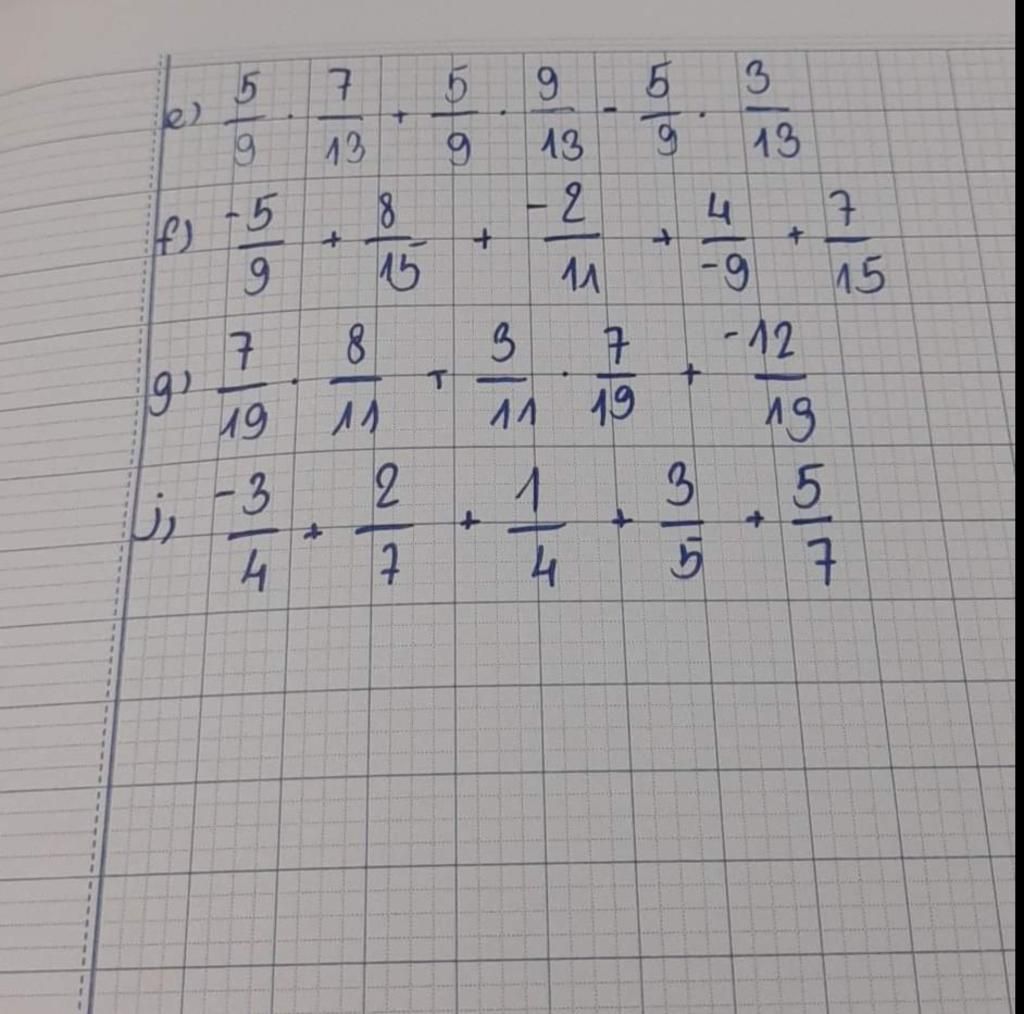 e) 5/9 · 7/13 + 5/9 · 9/13 - 5/9 · 3/13
f) -5/9 + 8/15 + -2/11 + 4/-9 + 7/15
g) 7/19 · 8/11 + 3/11 · 7/19 + -12/19
j) -3/4 + 2/7 + 1/4 + 3/5 + 5/7